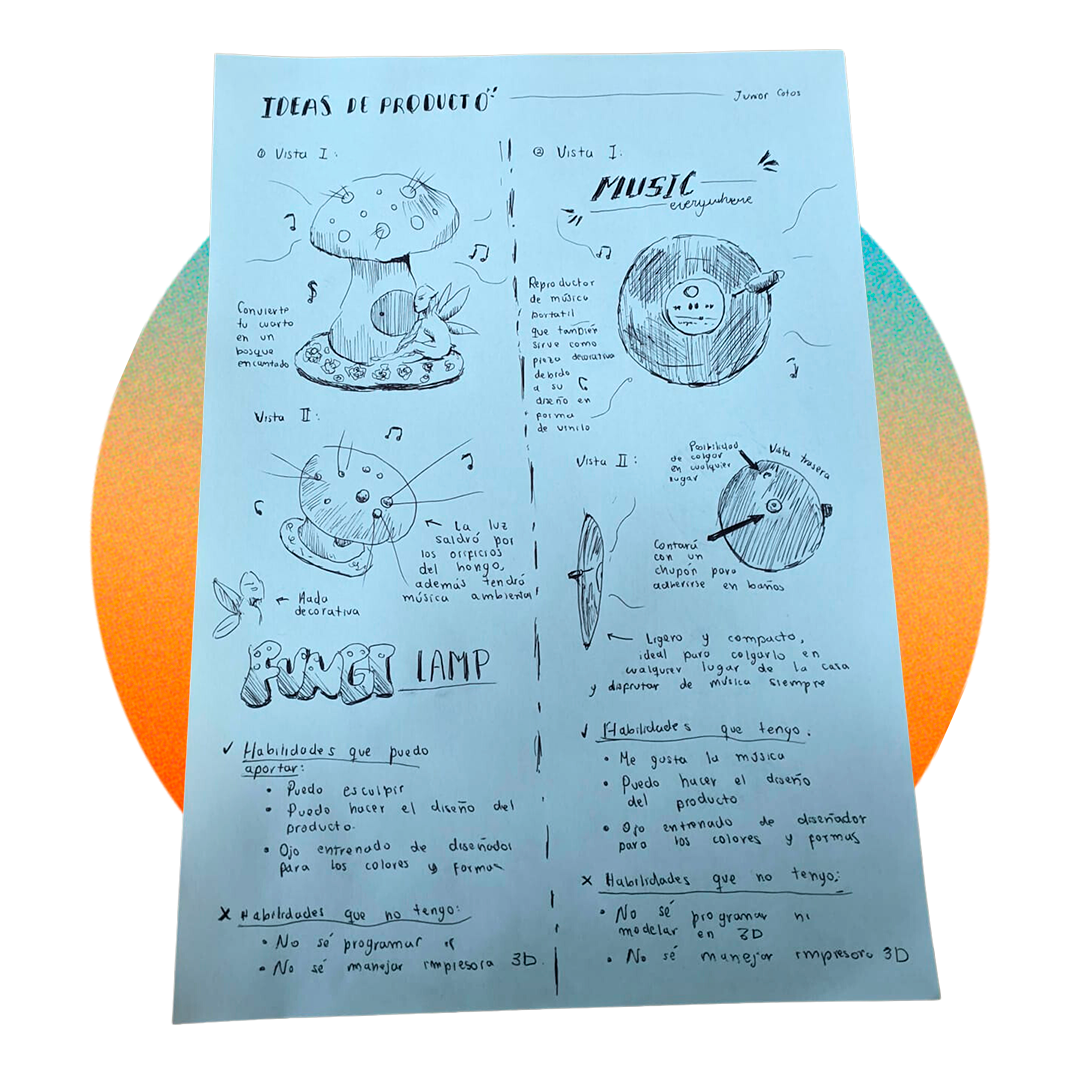 IDEAS DE PRODUCTO
Junior Cotos
① Vista I:
Convierte
tu cuarto
en un
bosque
encantado
Vista II:
La luz
saldrá por
los orificios
del hongo,
además tendrá
música ambiental
Hada
decorativa
FUNGI LAMP
✓ Habilidades que puedo
aportar:
• Puedo esculpir
• Puedo hacer el diseño del
producto.
• Ojo entrenado de diseñador
para los colores y formas
X Habilidades que no tengo:
• No sé programar
• No sé manejar impresora 3D.
② Vista I:
MUSIC
everywhere
Reproductor
de música
portatil
que también
sirve como
pieza decorativa
debido
a su
diseño en
forma
de vinilo
Vista II:
Posibilidad
de colgar
en cualquier
lugar
Vista trasera
Contará
con un
chupón para
adherirse en baños
Ligero y compacto,
ideal para colgarlo en
cualquier lugar de la casa
y disfrutar de música siempre
✓ Habilidades que tengo:
• Me gusta la música
• Puedo hacer el diseño
del producto
• Ojo entrenado de diseñador
para los colores y formas
X Habilidades que no tengo:
• No sé programar ni
modelar en 3D
• No sé manejar impresora 3D